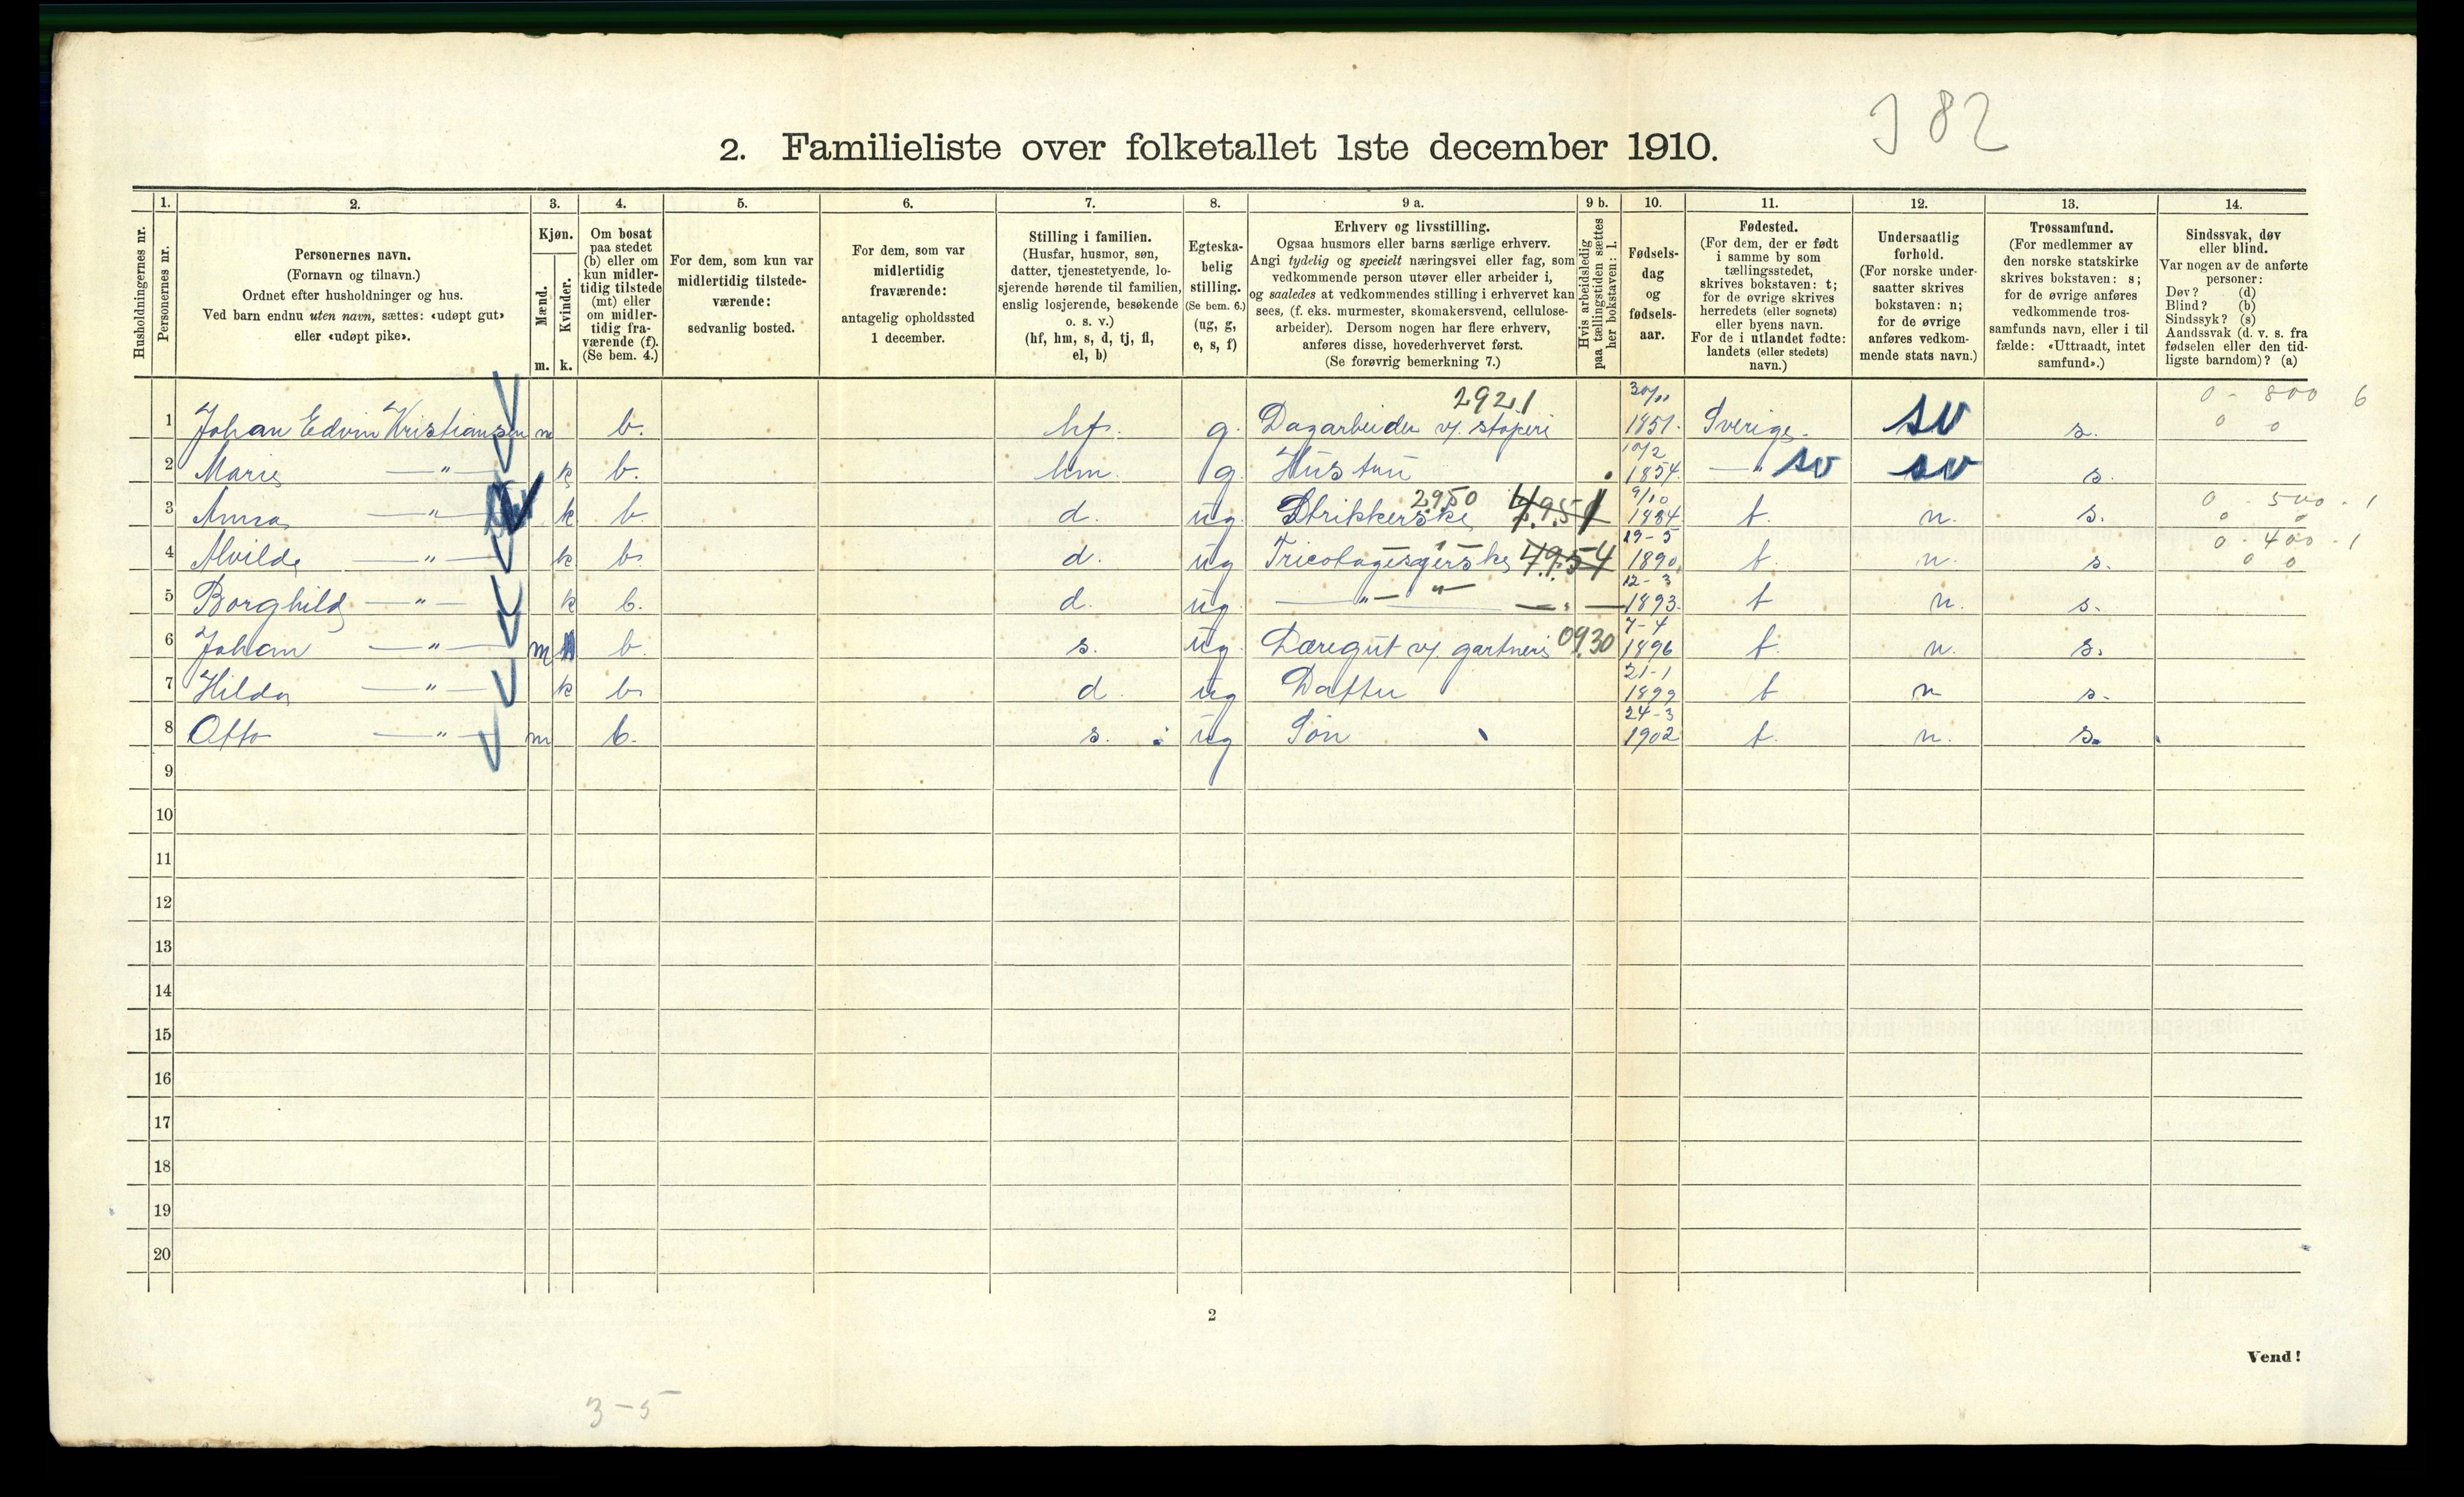 J 82
2. Familieliste over folketallet 1ste december 1910.
Husholdningernes nr.
1. Personernes nr.
2. Personernes navn.
(Fornavn og tilnavn.)
Ordnet efter husholdninger og hus.
Ved barn endnu uten navn, sættes: «udøpt gut»
eller «udøpt pike».
3. Kjøn.
Mænd. m.
Kvinder. k.
4. Om bosat
paa stedet
(b) eller om
kun midler-
tidig tilstede
(mt) eller
om midler-
tidig fra-
værende (f).
(Se bem. 4.)
5. For dem, som kun var
midlertidig tilstede-
værende:
sedvanlig bosted.
6. For dem, som var
midlertidig
fraværende:
antagelig opholdssted
1 december.
7. Stilling i familien.
(Husfar, husmor, søn,
datter, tjenestetyende, lo-
sjerende hørende til familien,
enslig losjerende, besøkende
o. s. v.)
(hf, hm, s, d, tj, fl,
el, b)
8. Egteska-
belig
stilling.
(Se bem. 6.)
(ug, g,
e, s, f)
9 a. Erhverv og livsstilling.
Ogsaa husmors eller barns særlige erhverv.
Angi tydelig og specielt næringsvei eller fag, som
vedkommende person utøver eller arbeider i,
og saaledes at vedkommendes stilling i erhvervet kan
sees, (f. eks. murmester, skomakersvend, cellulose-
arbeider). Dersom nogen har flere erhverv,
anføres disse, hovederhvervet først.
(Se forøvrig bemerkning 7.)
9 b. Hvis arbeidsledig
paa tællingstiden sættes
her bokstaven: l.
10. Fødsels-
dag
og
fødsels-
aar.
11. Fødested.
(For dem, der er født
i samme by som
tællingsstedet,
skrives bokstaven: t;
for de øvrige skrives
herredets (eller sognets)
eller byens navn.
For de i utlandet fødte:
landets (eller stedets)
navn.)
12. Undersaatlig
forhold.
(For norske under-
saatter skrives
bokstaven: n;
for de øvrige
anføres vedkom-
mende stats navn.)
13. Trossamfund.
(For medlemmer av
den norske statskirke
skrives bokstaven: s;
for de øvrige anføres
vedkommende tros-
samfunds navn, eller i til
fælde: «Uttraadt, intet
samfund».)
14. Sindssvak, døv
eller blind.
Var nogen av de anførte
personer:
Døv? (d)
Blind? (b)
Sindssyk? (s)
Aandssvak (d. v. s. fra
fødselen eller den tid-
ligste barndom)? (a)
2921 30/11 0 - 800 6
1 Johan Edvin Kristiansen m b. hf. g. Dagarbeider v/. støperi 1851. Sverige. sv s. 0 0
10/2
2 Marie —"— k b. hm. g. Hustru 1854. —"— sv sv s.
2950 9/10 0 - 500 - 1
3 Anna —"— k b. d. ug. Strikkerske 4951 1884 t. n. s. 0 0
19-5 0 - 400 - 1
4 Alvilde —"— k b. d. ug Tricotagesyerske 4954 1890. t. n. s. 0 0
12-3
5 Borghild —"— k b. d. ug. —"— 1893. t n. s.
7-4
6 Johan —"— m b. s. ug. Læregut v/. gartneri 0930 1896 t. n. s.
21-1
7 Hilda —"— k b. d. ug Datter 1899 t n s.
24-3
8 Otto —"— m b. s. ug Søn 1902 t. n. s.
9
10
11
12
13
14
15
16
17
18
19
20
2
Vend!
3-5